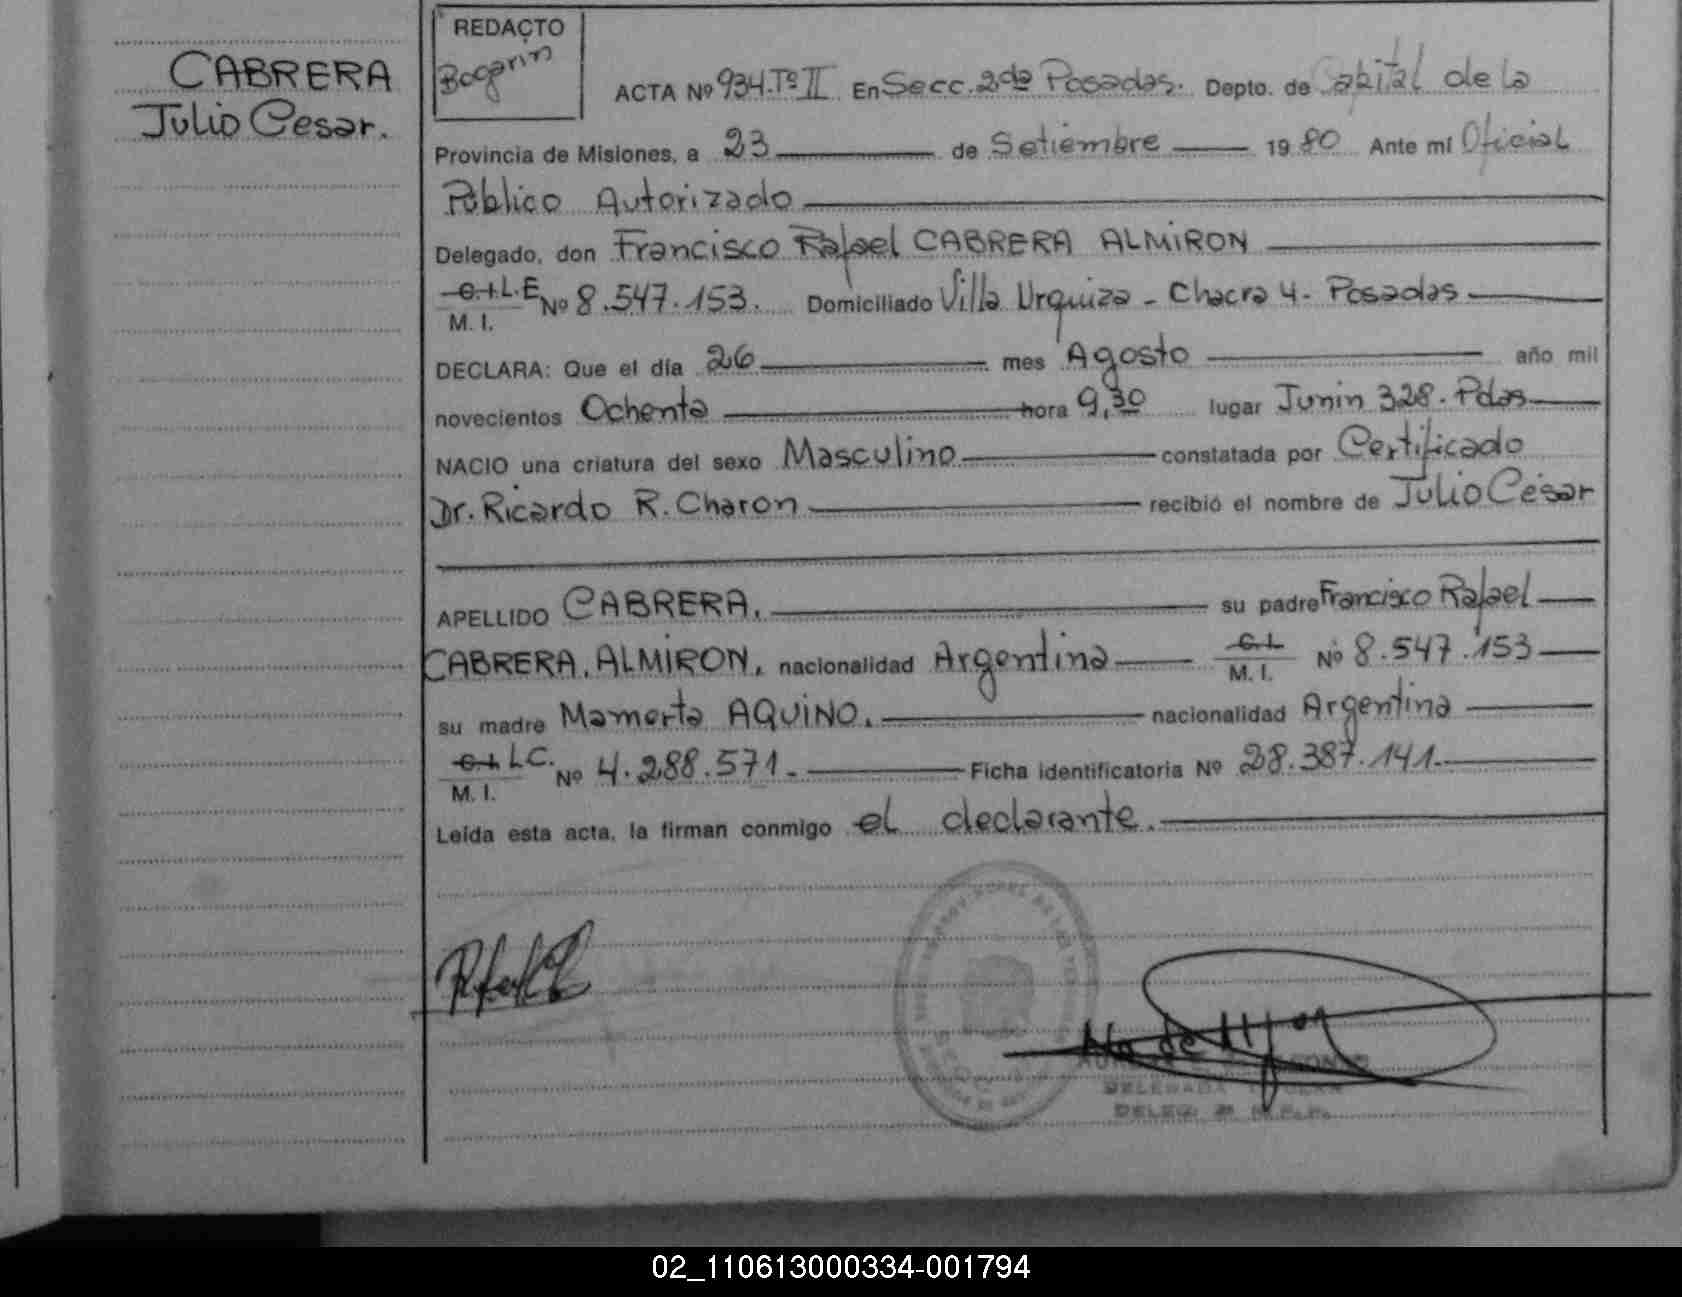 CABRERA
Julio Cesar.
REDACTO
Bogarin
ACTA Nº 934.Tº II En Secc. 2da Posadas. Depto. de Capital de la
Provincia de Misiones, a 23 de Setiembre 1980 Ante mi Oficial
Público Autorizado
Delegado, don Francisco Rafael CABRERA ALMIRON
C.I. L.E Nº 8.547.153. Domiciliado Villa Urquiza - Chacra 4 - Posadas
M. I.
DECLARA: Que el día 26 mes Agosto año mil
novecientos Ochenta hora 9,30 lugar Junin 328. Pdas
NACIO una criatura del sexo Masculino constatada por Certificado
Dr. Ricardo R. Charon recibió el nombre de Julio César
APELLIDO CABRERA. su padre Francisco Rafael
CABRERA. ALMIRON, nacionalidad Argentina C.I. Nº 8.547.153
M. I.
su madre Mamerta AQUINO. nacionalidad Argentina
C.I. L.C. Nº 4.288.571.- Ficha identificatoria Nº 28.387.141.
M. I.
Leída esta acta, la firman conmigo el declarante.
DELEGADA TITULAR
02_110613000334-001794